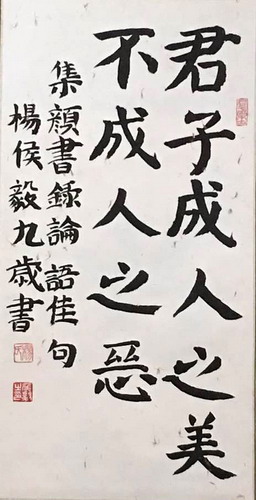 君子成人之美
不成人之惡
集顏書錄論語佳句
楊侯毅九歲書